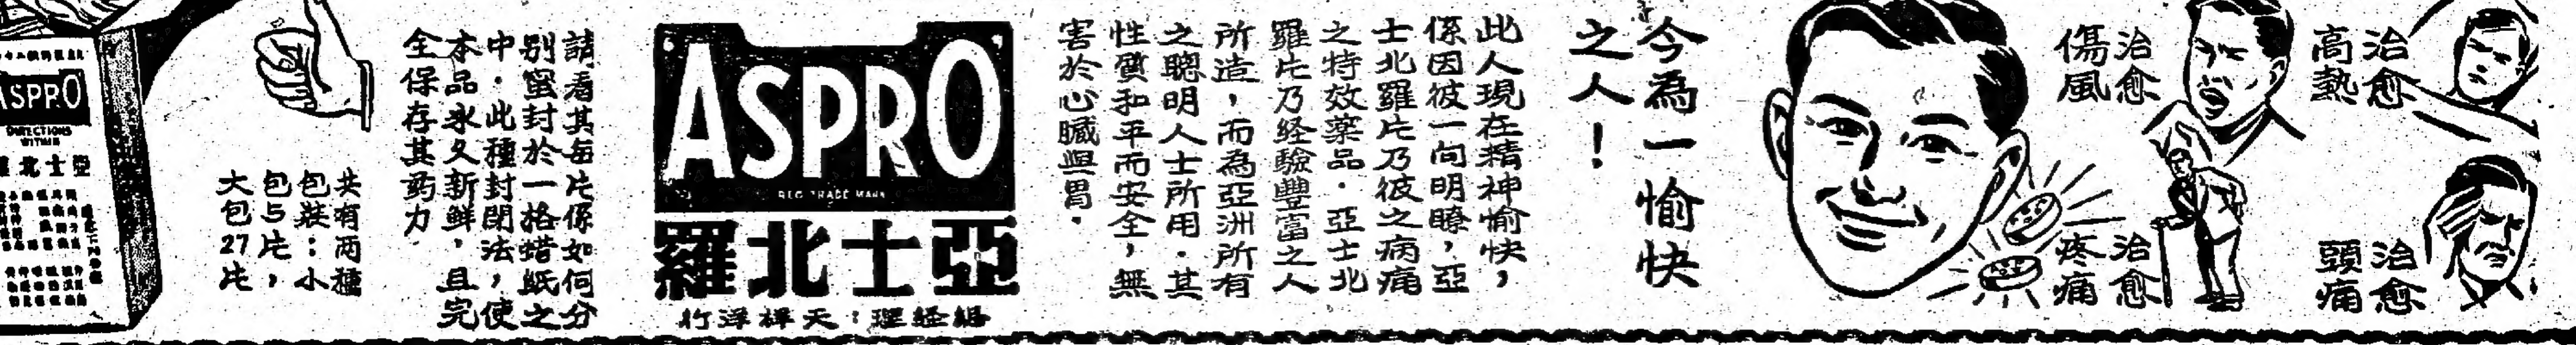 治愈
高熱
治愈
頭痛
治愈
傷風
治愈
疼痛
今為一愉快
之人！
此人現在精神愉快，
係因彼一向明瞭，亞
士北羅片乃彼之病痛
之特效藥品．亞士北
羅片乃経驗豐富之人
所造，而為亞洲所有
之聰明人士所用．其
性質和平而安全，無
害於心臟與胃．
ASPRO
REG TRADE MARK
亞士北羅
総経理：天祥洋行
請看其每片係如何分
别蜜封於一格蜡紙之
中．此種封閉法，使
本品永久新鮮，且完
全保存其葯力．
共有两種
包裝：小
包5片，
大包27片
ASPRO
DIRECTIONS
WITHIN
亞士北羅